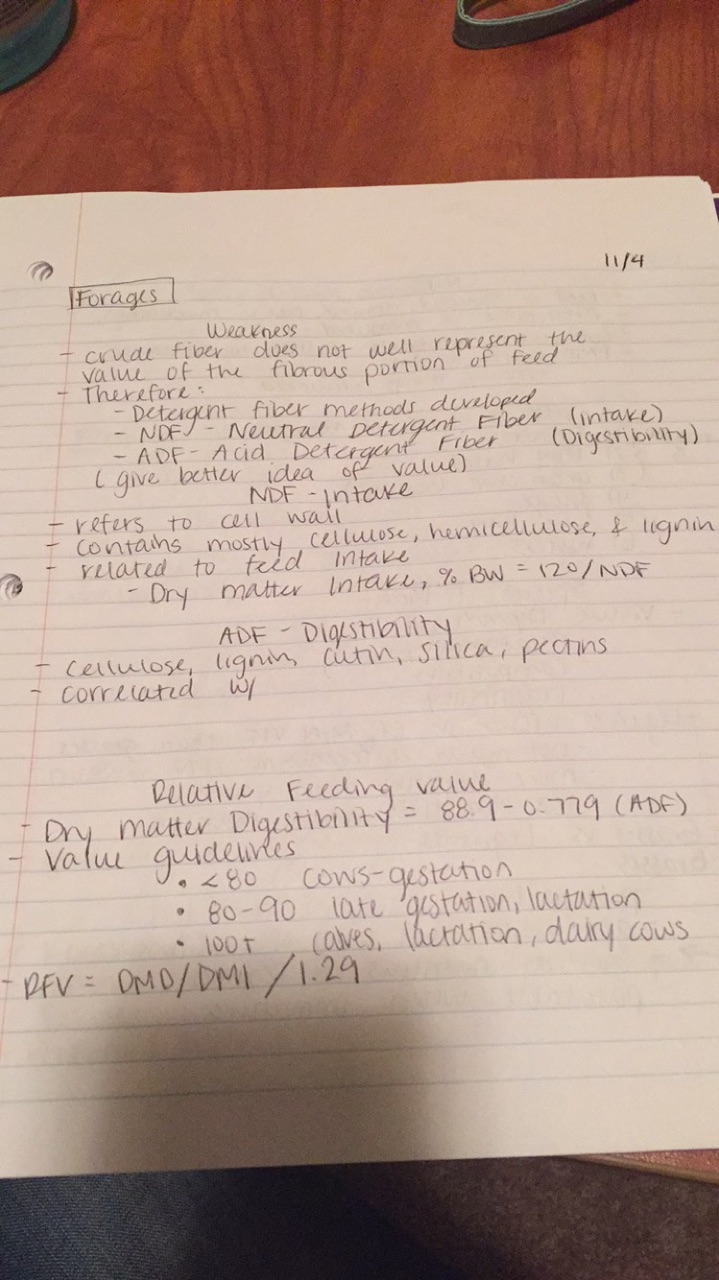 11/4
Forages
Weakness
- crude fiber does not well represent the
value of the fibrous portion of feed
- Therefore:
- Detergent fiber methods developed
- NDF - Neutral Detergent Fiber (intake)
- ADF - Acid Detergent Fiber (Digestibility)
(give better idea of value)
NDF - Intake
- refers to cell wall
- contains mostly cellulose, hemicellulose, & lignin
- related to feed intake
- Dry matter Intake, % BW = 120/NDF
ADF - Digestibility
- cellulose, lignin, cutin, silica, pectins
- correlated w/
Relative Feeding value
- Dry matter Digestibility = 88.9 - 0.779 (ADF)
- Value guidelines
• <80 cows-gestation
• 80-90 late gestation, lactation
• 100+ calves, lactation, dairy cows
- RFV = DMD/DMI /1.29